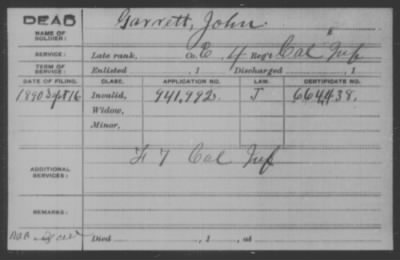 DEAD Garrett, John.
NAME OF SOLDIER:
SERVICE: Late rank, Co. E, 4 Reg't Cal Inf
TERM OF SERVICE: Enlisted , 1 Discharged , 1
DATE OF FILING. CLASS. APPLICATION NO. LAW. CERTIFICATE NO.
1890 Sept 16 Invalid, 941,992. J 664,438.
Widow,
Minor,
ADDITIONAL SERVICES: F 7 Cal Inf
REMARKS:
Died , 1 , at